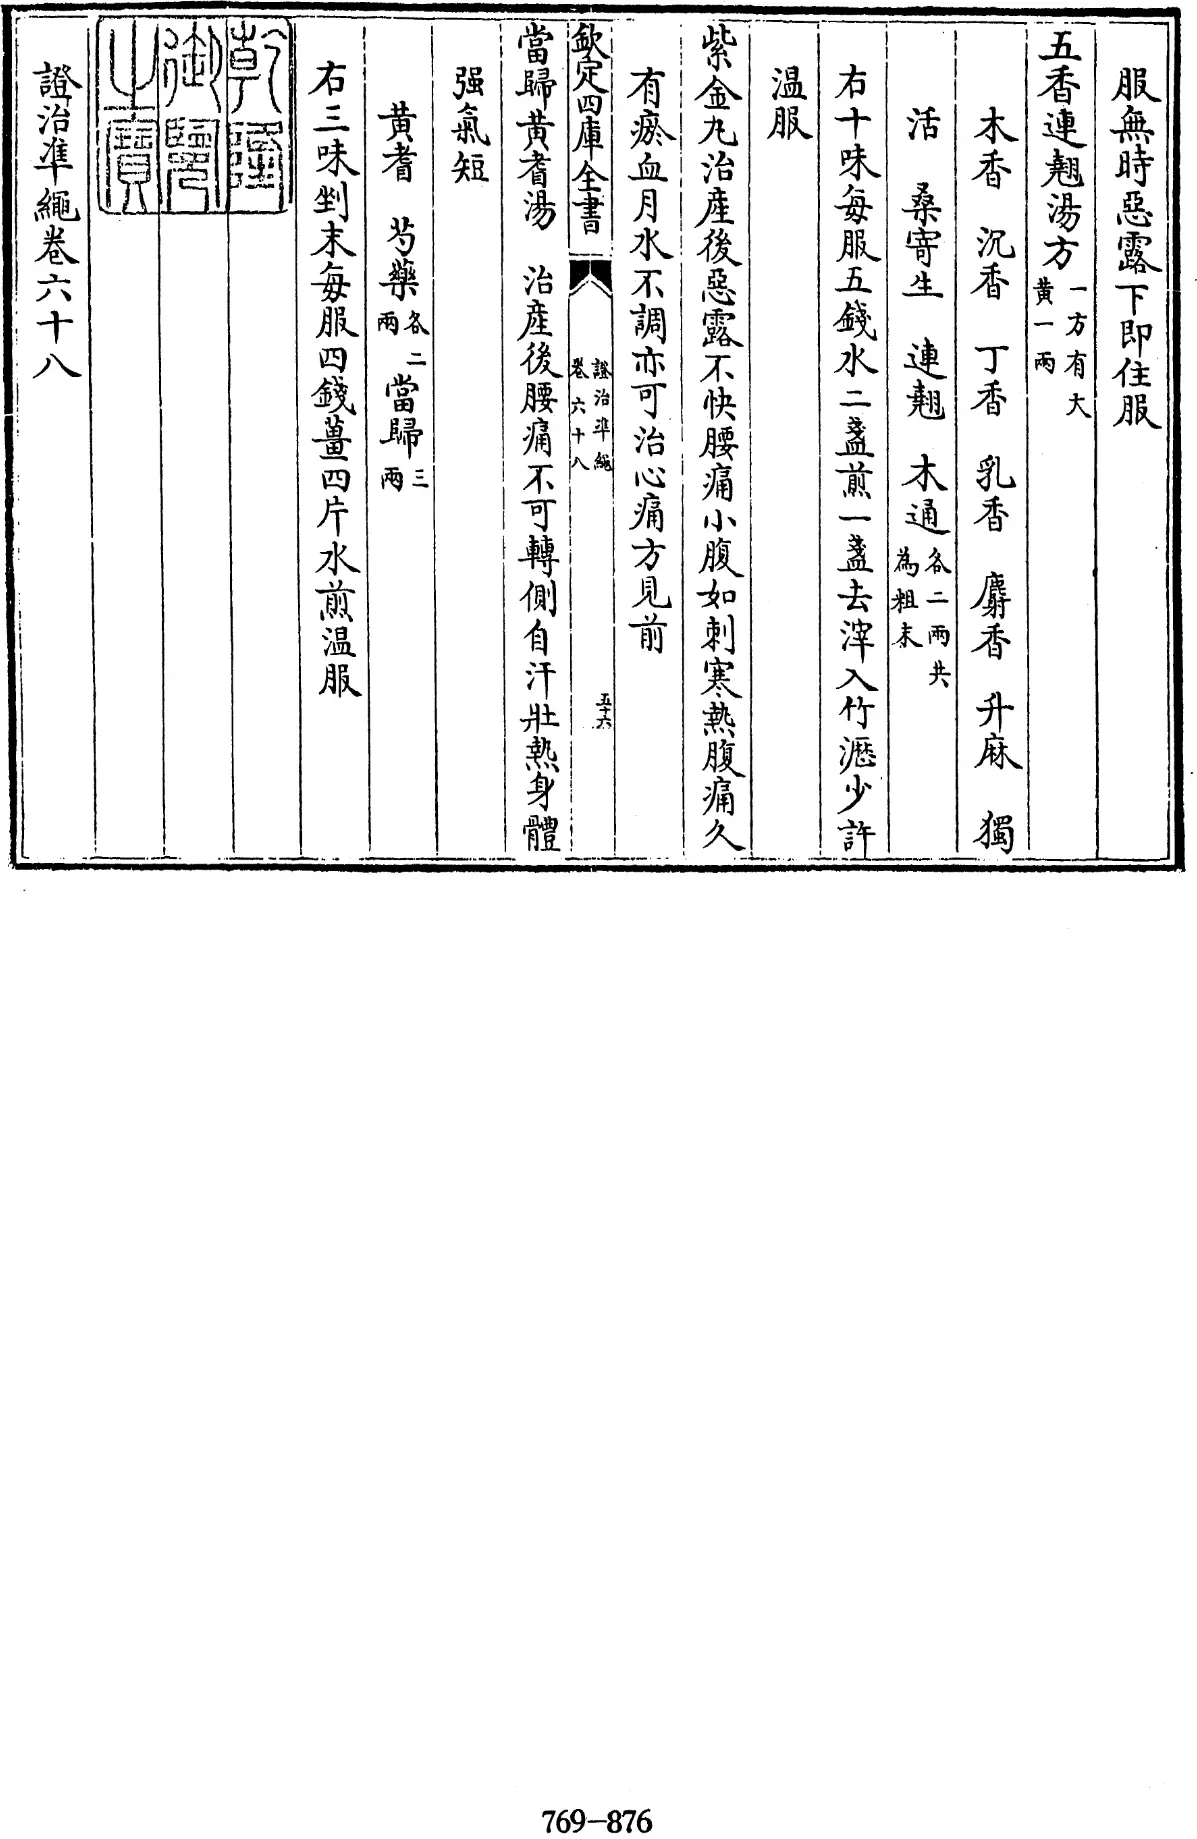 服無時惡露下即住服
五香連翹湯方一方有大黄一兩
木香 沉香 丁香 乳香 麝香 升麻 獨
活 桑寄生 連翹 木通各二兩共為粗末
右十味每服五錢水二盞煎一盞去滓入竹瀝少許
温服
紫金丸治産後惡露不快腰痛小腹如刺寒熱腹痛久
有瘀血月水不調亦可治心痛方見前
欽定四庫全書
證治準繩
卷六十八
五十六
當歸黄耆湯 治産後腰痛不可轉側自汗壯熱身體
强氣短
黄耆 芍藥各二兩 當歸三兩
右三味剉末每服四錢薑四片水煎温服
乾隆
御覽
之寶
證治準繩卷六十八
769-876